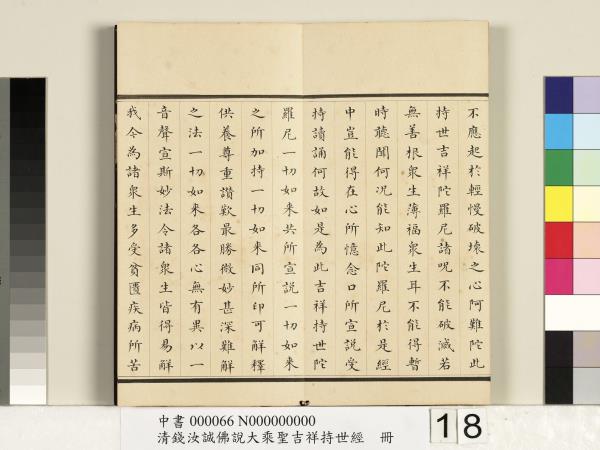 不應起於輕慢破壞之心阿難陀此
持世吉祥陀羅尼諸呪不能破滅若
無善根衆生薄福衆生耳不能得暫
時聽聞何況能知此陀羅尼於是經
中豈能得在心所憶念口所宣說受
持讀誦何故如是為此吉祥持世陀
羅尼一切如來共所宣說一切如來
之所加持一切如來同所印可解釋
供養尊重讚歎最勝微妙甚深難解
之法一切如來各各心無有異以一
音聲宣斯妙法令諸衆生皆得易解
我今為諸衆生多受貧匱疾病所苦
中書 000066 N000000000
清錢汝誠佛說大乘聖吉祥持世經 冊
18